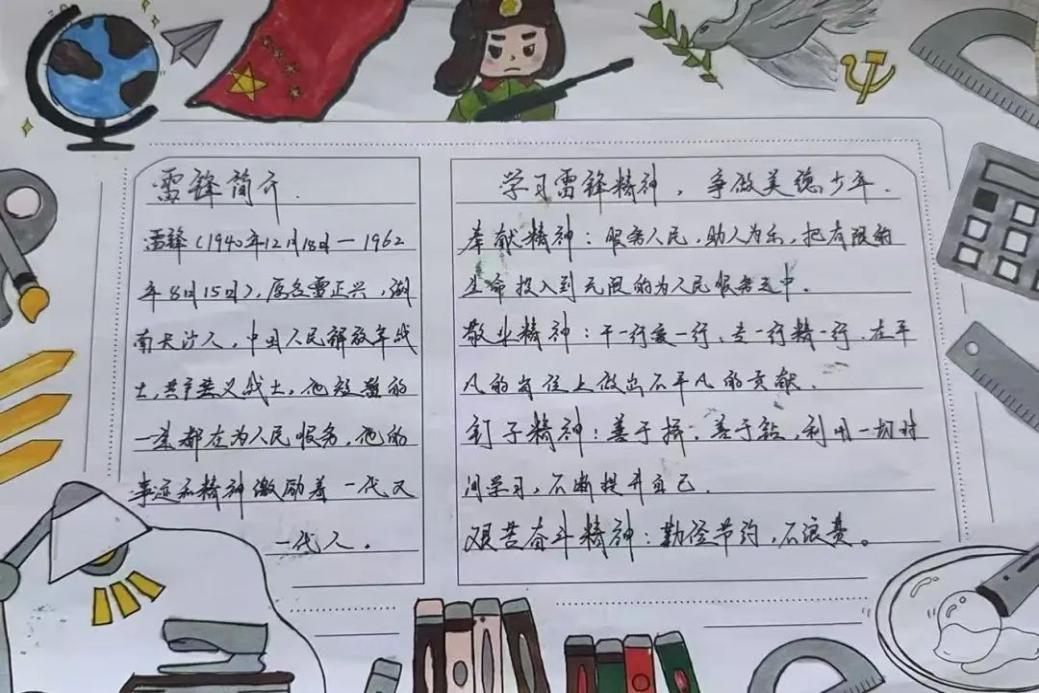 雷锋简介.
雷锋(1940年12月18日—1962
年8月15日),原名雷正兴,湖
南长沙人,中国人民解放军战
士,共产主义战士,他短暂的
一生都在为人民服务,他的
事迹和精神激励着一代又
一代人。
学习雷锋精神,争做美德少年.
奉献精神:服务人民,助人为乐,把有限的
生命投入到无限的为人民服务之中.
敬业精神:干一行爱一行,专一行精一行.在平
凡的岗位上做出不平凡的贡献.
钉子精神:善于挤,善于钻,利用一切时
间学习,不断提升自己.
艰苦奋斗精神:勤俭节约,不浪费。